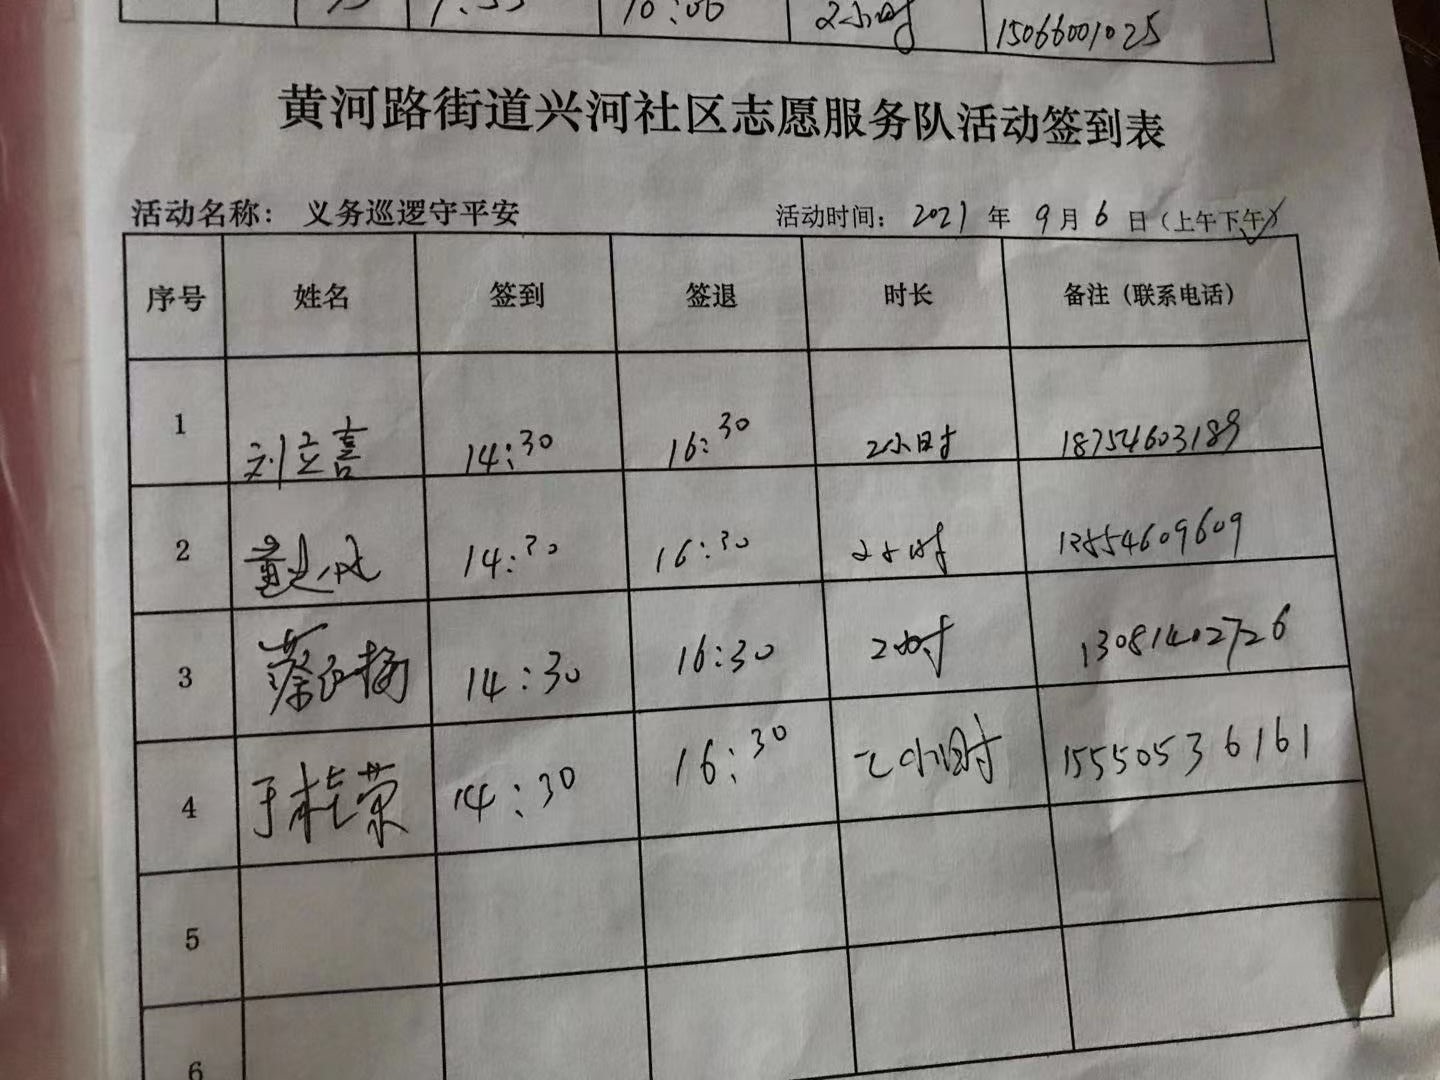 10:06 2小时 15066001025
黄河路街道兴河社区志愿服务队活动签到表
活动名称： 义务巡逻守平安 活动时间： 2021 年 9月 6 日（上午下午）
序号 姓名 签到 签退 时长 备注（联系电话）
1 刘立喜 14:30 16:30 2小时 18754603189
2 14:30 16:30 2小时 13854609609
3 14:30 16:30 2小时 13081402726
4 于桂荣 14:30 16:30 2小时 15550536161
5
6